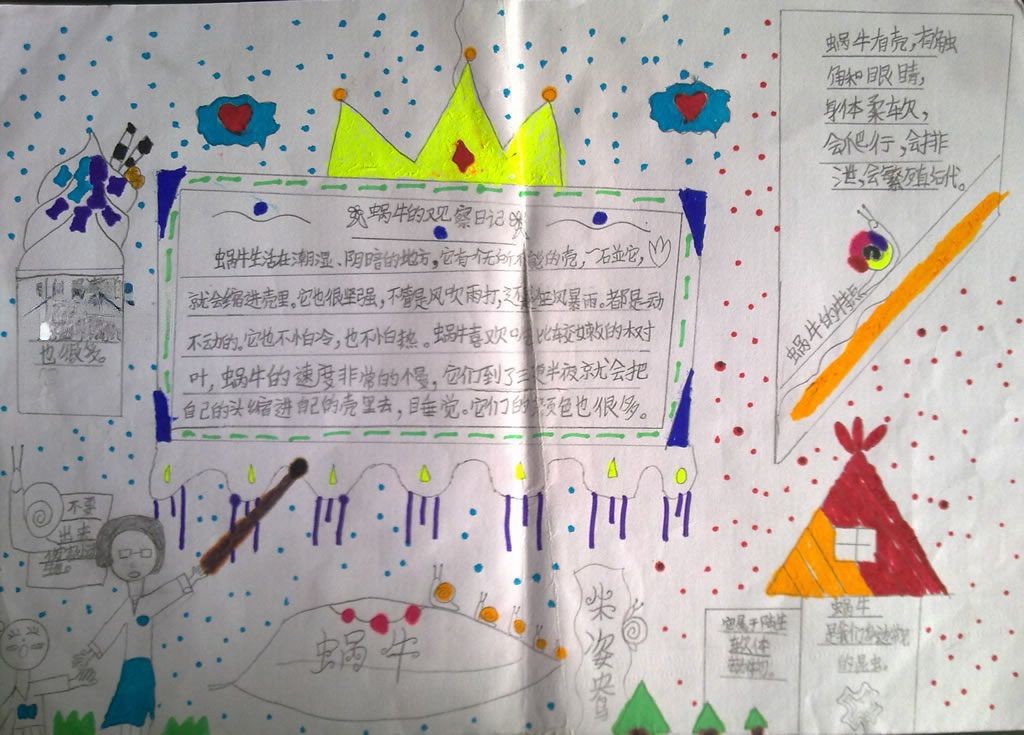 蜗牛的观察日记
蜗牛生活在潮湿、阴暗的地方,它有个无所不能的壳,一石並它,
就会缩进壳里。它也很坚强,不管是风吹雨打,还是狂风暴雨。都是动
不动的。它也不怕冷,也不怕热。蜗牛喜欢吃比较嫩的树
叶,蜗牛的速度非常的个慢,它们到了三更半夜就会把
自己的头缩进自己的壳里去,目垂觉。它们的颜色也很多。
蜗牛有壳,有触
角和眼睛,
身体柔软,
会爬行,会排
泄,会繁殖后代。
蜗牛的特点
也很多。
不要
出来
蜗牛
柴姿
它属于陆生
软体
动物。
蜗牛
的昆虫。